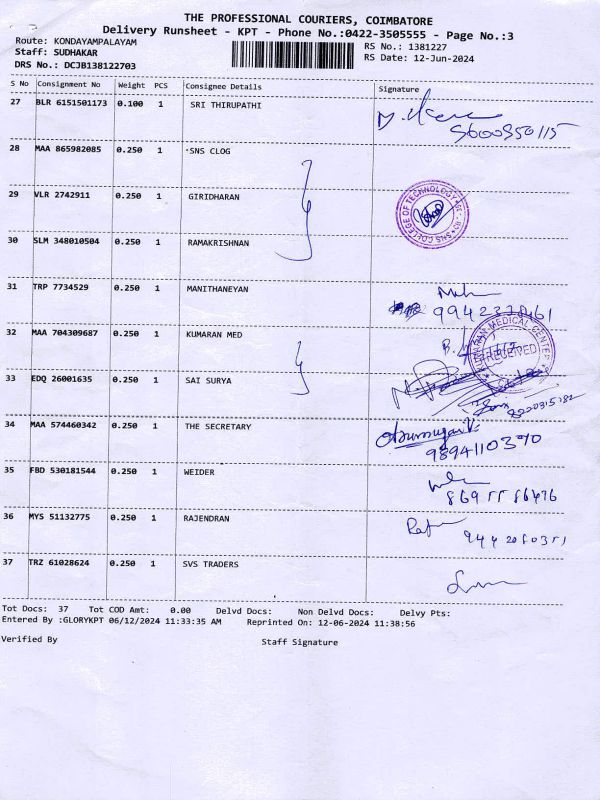 THE PROFESSIONAL COURIERS, COIMBATORE
Delivery Runsheet - KPT - Phone No.:0422-3505555 - Page No.:3
Route: KONDAYAMPALAYAM
RS No.: 1381227
Staff: SUDHAKAR
RS Date: 12-Jun-2024
DRS No.: DCJB138122703
S No Consignment No Weight PCS Consignee Details Signature
27 BLR 6151501173 0.100 1 SRI THIRUPATHI
9600350115
28 MAA 865982085 0.250 1 SNS CLOG
29 VLR 2742911 0.250 1 GIRIDHARAN
SNS COLLEGE OF TECHNOLOGY
30 SLM 348010504 0.250 1 RAMAKRISHNAN
31 TRP 7734529 0.250 1 MANITHANEYAN
32 MAA 704309687 0.250 1 KUMARAN MED
MEDICAL CENTER
RECEIVED
33 EDQ 26001635 0.250 1 SAI SURYA
34 MAA 574460342 0.250 1 THE SECRETARY
9894110390
35 FBD 530181544 0.250 1 WEIDER
36 MYS 51132775 0.250 1 RAJENDRAN
37 TRZ 61028624 0.250 1 SVS TRADERS
Tot Docs: 37 Tot COD Amt: 0.00 Delvd Docs: Non Delvd Docs: Delvy Pts:
Entered By :GLORYKPT 06/12/2024 11:33:35 AM Reprinted On: 12-06-2024 11:38:56
Verified By Staff Signature